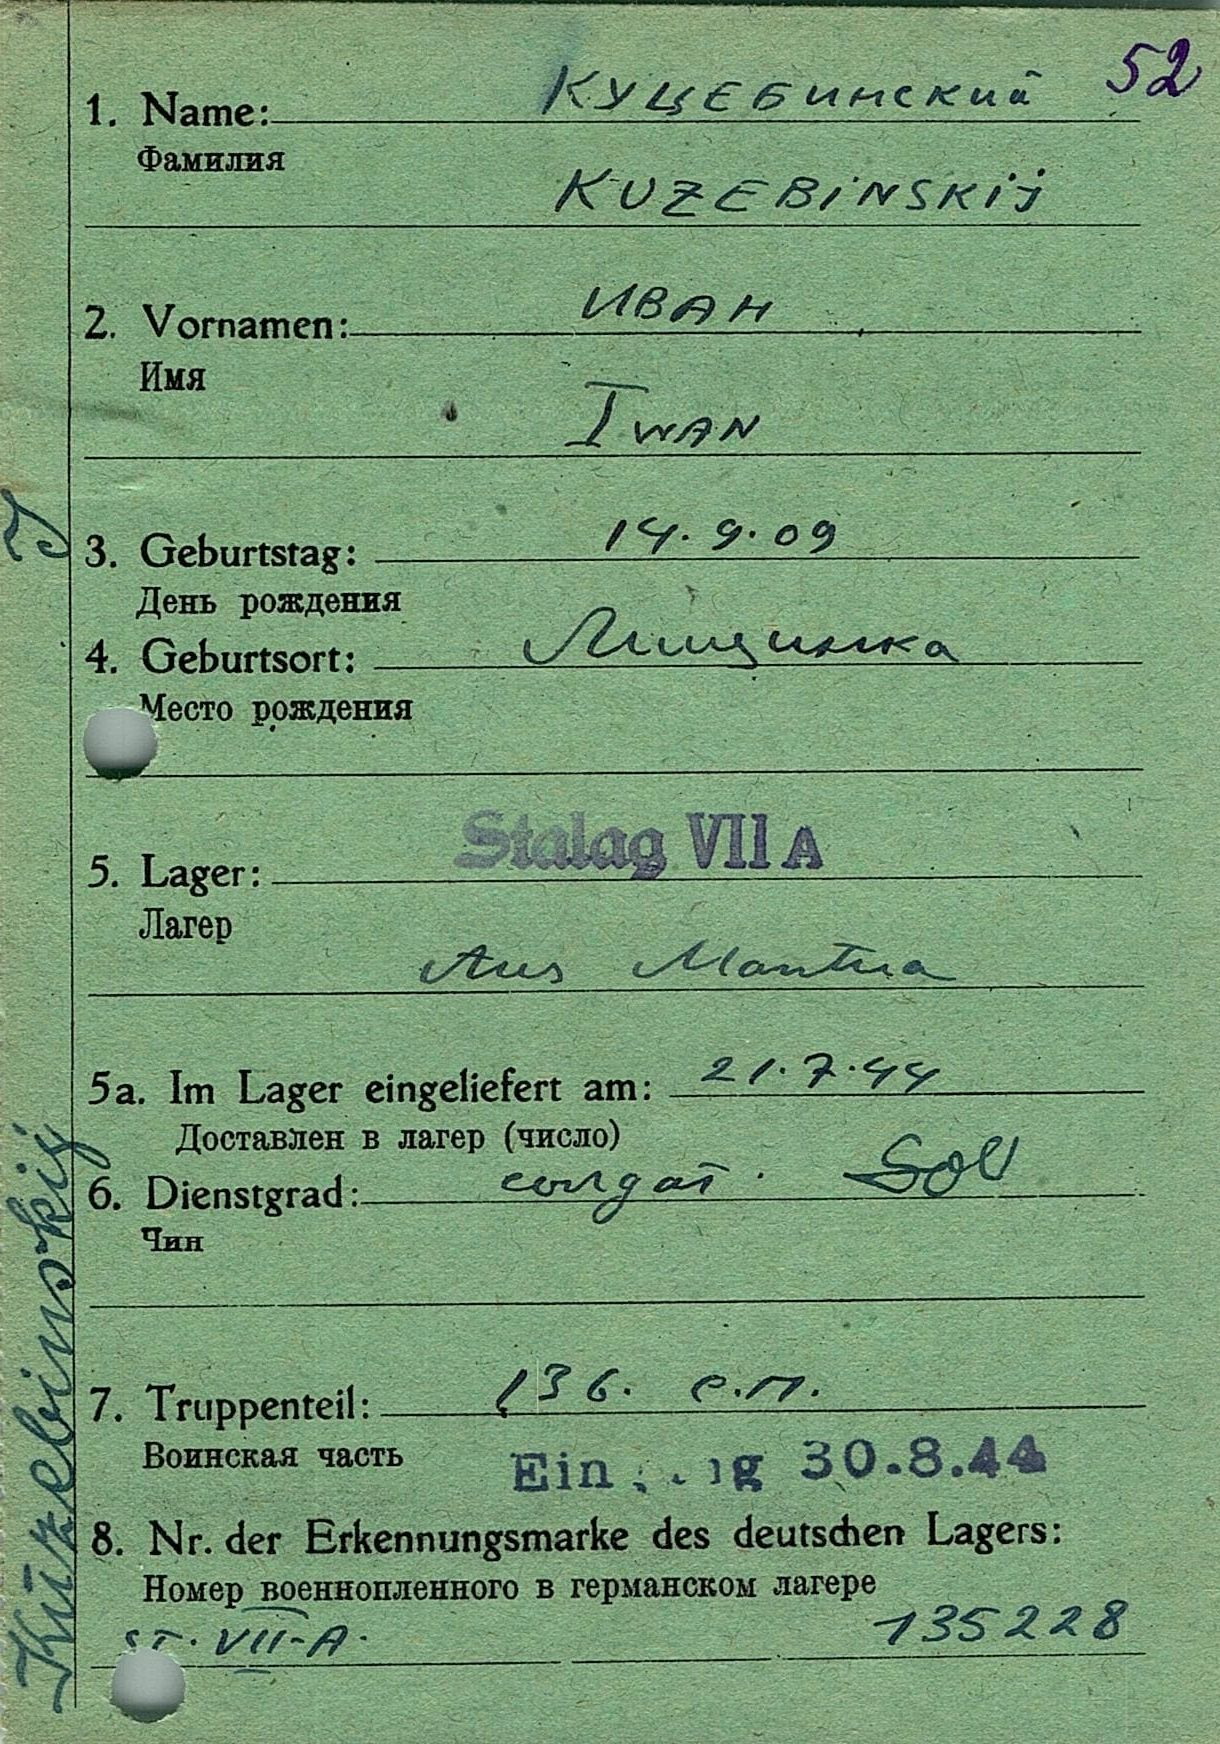 52
1. Name: Куцебинский
Фамилия
KUZEBINSKIJ
2. Vornamen: Иван
Имя
IWAN
3. Geburtstag: 14.9.09
День рождения
4. Geburtsort: Лищинка
Место рождения
5. Lager: Stalag VII A
Лагер
Aus Mantua
5a. Im Lager eingeliefert am: 21.7.44
Доставлен в лагер (число)
6. Dienstgrad: Sol
Чин
7. Truppenteil: 136. с.п.
Воинская часть
30.8.44
8. Nr. der Erkennungsmarke des deutschen Lagers:
Номер военнопленного в германском лагере
ST. VII-A. 135228
Kuzebinskij J